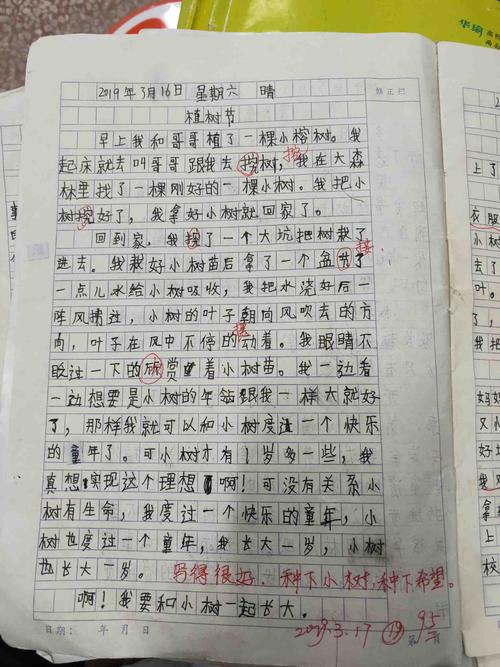 华瑜
2019年3月16日 星期六 晴
修正栏
植树节
早上我和哥哥植了一棵小榕树。我
起床就去叫哥哥跟我去挖树，我在大森
挖
林里找了一棵刚好的一棵小树。我把小
树挖好了，我拿好小树就回家了。
回到家，我挖了一个大坑把树栽了
进去。我栽好小树苗后拿了一个盆
接
一点儿水给小树吸收，我把水浇好后一
阵风捕过，小树的叶子朝向风吹去的方
向，叶子在风中不停的动着。我眼睛不
摆
眨过一下的欣赏着小树苗。我一边看
一边想要是小树的年龄跟我一样大就好
了，那样我就可以和小树度过一个快乐
的童年了。可小树才有1岁多一些，我
真想实现这个理想啊！可没有关系小
树有生命，我度过一个快乐的童年，小
树也度过一个童年，我长大一岁，小树
也长大一岁。
写得很好，种下小树，种下希望。
啊！我要和小树一起长大。
2019.3.17
19
95
日期： 年 月 日
第 页
衣服
妈妈
又小
拿